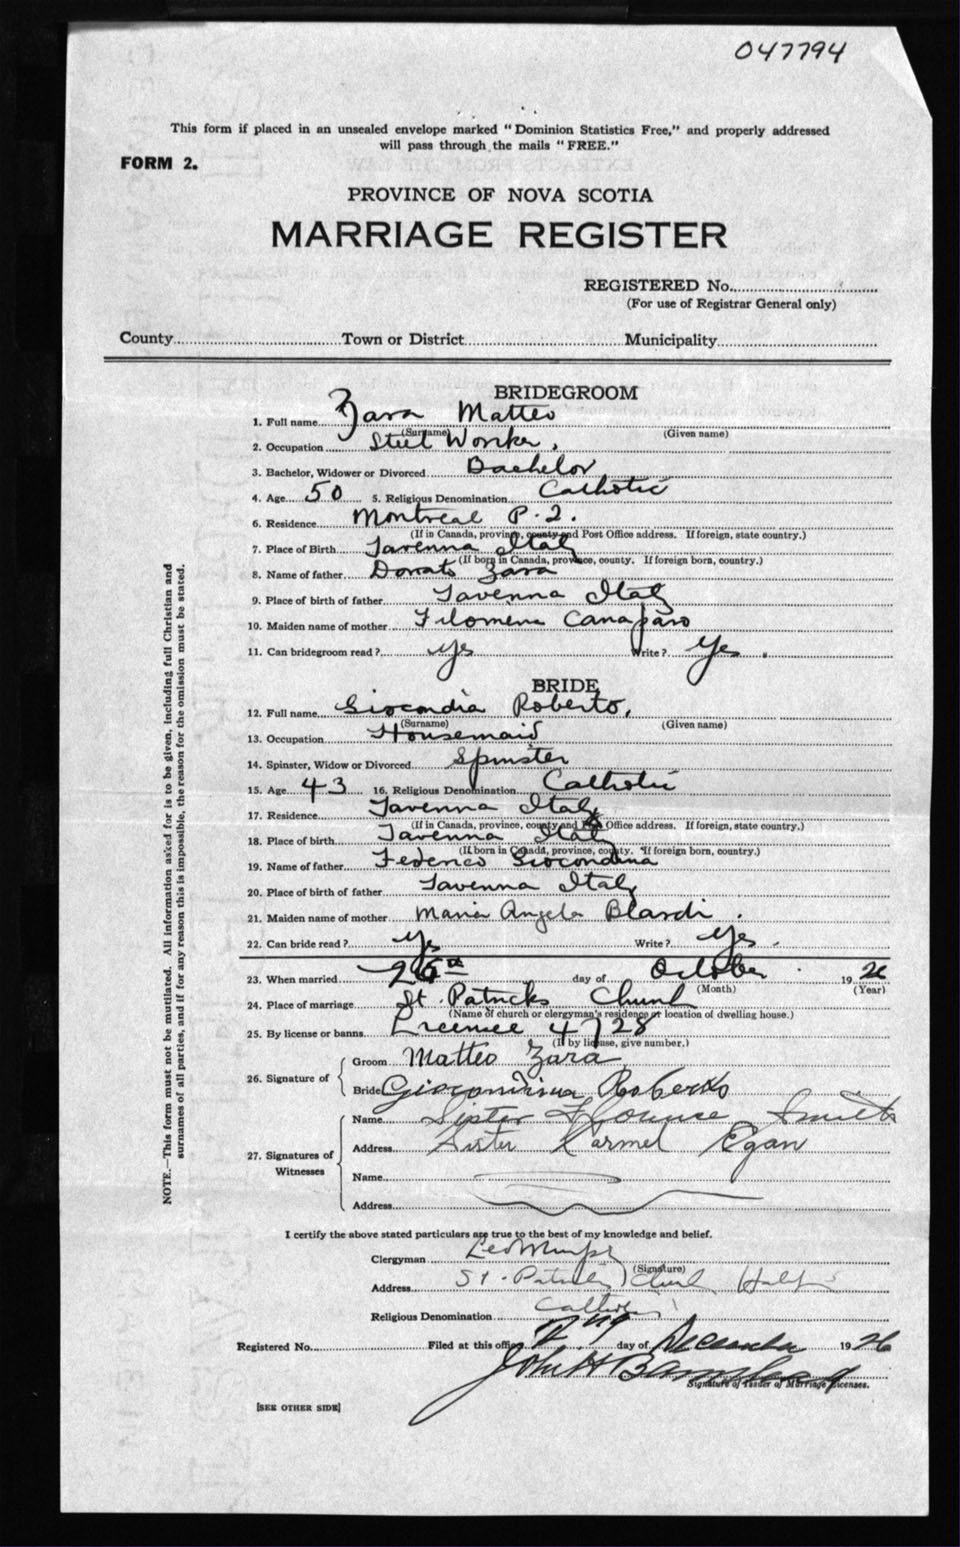 047794
This form if placed in an unsealed envelope marked "Dominion Statistics Free," and properly addressed
will pass through the mails "FREE."
FORM 2.
PROVINCE OF NOVA SCOTIA
MARRIAGE REGISTER
REGISTERED No.
(For use of Registrar General only)
County Town or District Municipality
BRIDEGROOM
1. Full name Zara Matteo
(Surname) (Given name)
2. Occupation Steel Worker,
3. Bachelor, Widower or Divorced Bachelor
4. Age 50 5. Religious Denomination Catholic
6. Residence Montreal P.Q.
(If in Canada, province, county and Post Office address. If foreign, state country.)
7. Place of Birth Tavenna Italy
(If born in Canada, province, county. If foreign born, country.)
8. Name of father Donato Zara
9. Place of birth of father Tavenna Italy
10. Maiden name of mother Filomena Canaparo
11. Can bridegroom read? Yes Write? Yes.
BRIDE
12. Full name Giocondia Roberto,
(Surname) (Given name)
13. Occupation Housemaid
14. Spinster, Widow or Divorced Spinster
15. Age 43 16. Religious Denomination Catholic
17. Residence Tavenna Italy
(If in Canada, province, county and Post Office address. If foreign, state country.)
18. Place of birth Tavenna Italy
(If born in Canada, province, county. If foreign born, country.)
19. Name of father Federico Giocondina
20. Place of birth of father Tavenna Italy
21. Maiden name of mother Maria Angela Blardi.
22. Can bride read? Yes Write? Yes.
23. When married 26th day of October 1926
(Month) (Year)
24. Place of marriage St. Patricks Church
(Name of church or clergyman's residence or location of dwelling house.)
25. By license or banns License 4728
(If by license, give number.)
26. Signature of
Groom Matteo Zara
Bride Giocondina Roberto
27. Signatures of Witnesses
Name Sister Florence Smith
Address Sister Karmel Egan
Name
Address
I certify the above stated particulars are true to the best of my knowledge and belief.
Clergyman Leo Murphy
(Signature)
Address St. Patricks Church Halifax
Religious Denomination Catholic
Registered No. Filed at this office day of December 1926
John H
Signature of Issuer of Marriage Licenses.
[SEE OTHER SIDE]
NOTE.—This form must not be mutilated. All information asked for is to be given, including full Christian and
surnames of all parties, and if for any reason this is impossible, the reason for the omission must be stated.